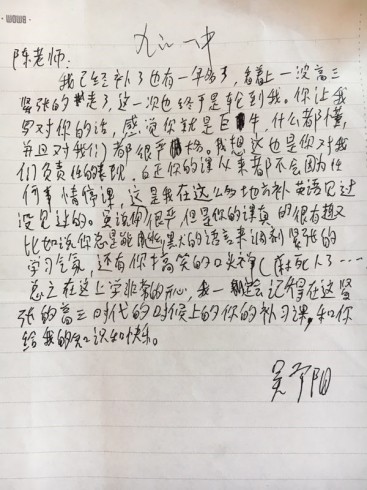 九江一中
陈老师:
我已经补了也有一年多了,看着上一次高三
紧张的走了,这一次也终于是轮到我。你让我
对你的话,感觉你就是巨牛,什么都懂,
并且对我们都很严格。我想这也是你对我
们负责任的表现。正你的课从来都不会因为任
何事情停课,这是我在这么多地方补英语见过
没见过的。虽说你很严但是你的课真的很有趣
比如说你总是能用幽默的语言来调剂紧张的
学习气氛,还有你搞笑的口头禅(死人了……
总之在这上学非常的开心,我一定会记得在这紧
张的高三时代的时候上的你的补习课,和你
给我的知识和快乐。
吴宇阳